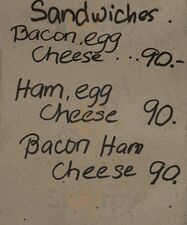 Sandwiches.
Bacon, egg
Cheese ... 90.-
Ham, egg
Cheese 90.
Bacon Ham
Cheese 90.